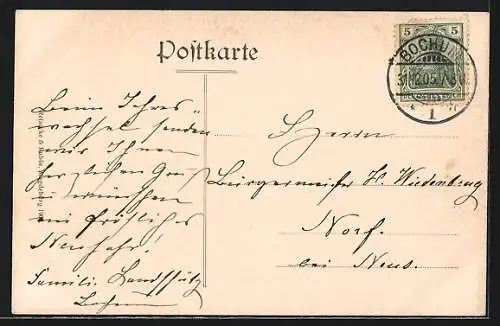 Postkarte
5 5
BOCHUM
31.12.05.
1
Beim Jahres-
wechsel senden
wir Ihnen
herzlichen Gruß
u. wünschen
ein fröhliches
Neujahr!
Familie Landschütz
Bochum
Herrn
Bürgermeister H. Wiedenbrug
Norf.
bei Neus.